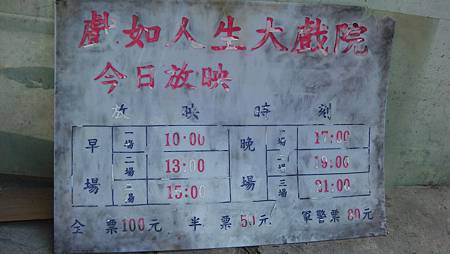 戲如人生大戲院
今日放映
放映時刻
早場
一場 10:00
二場 13:00
三場 15:00
晚場
一場 17:00
二場 19:00
三場 21:00
全票100元 半票50元 軍警票80元